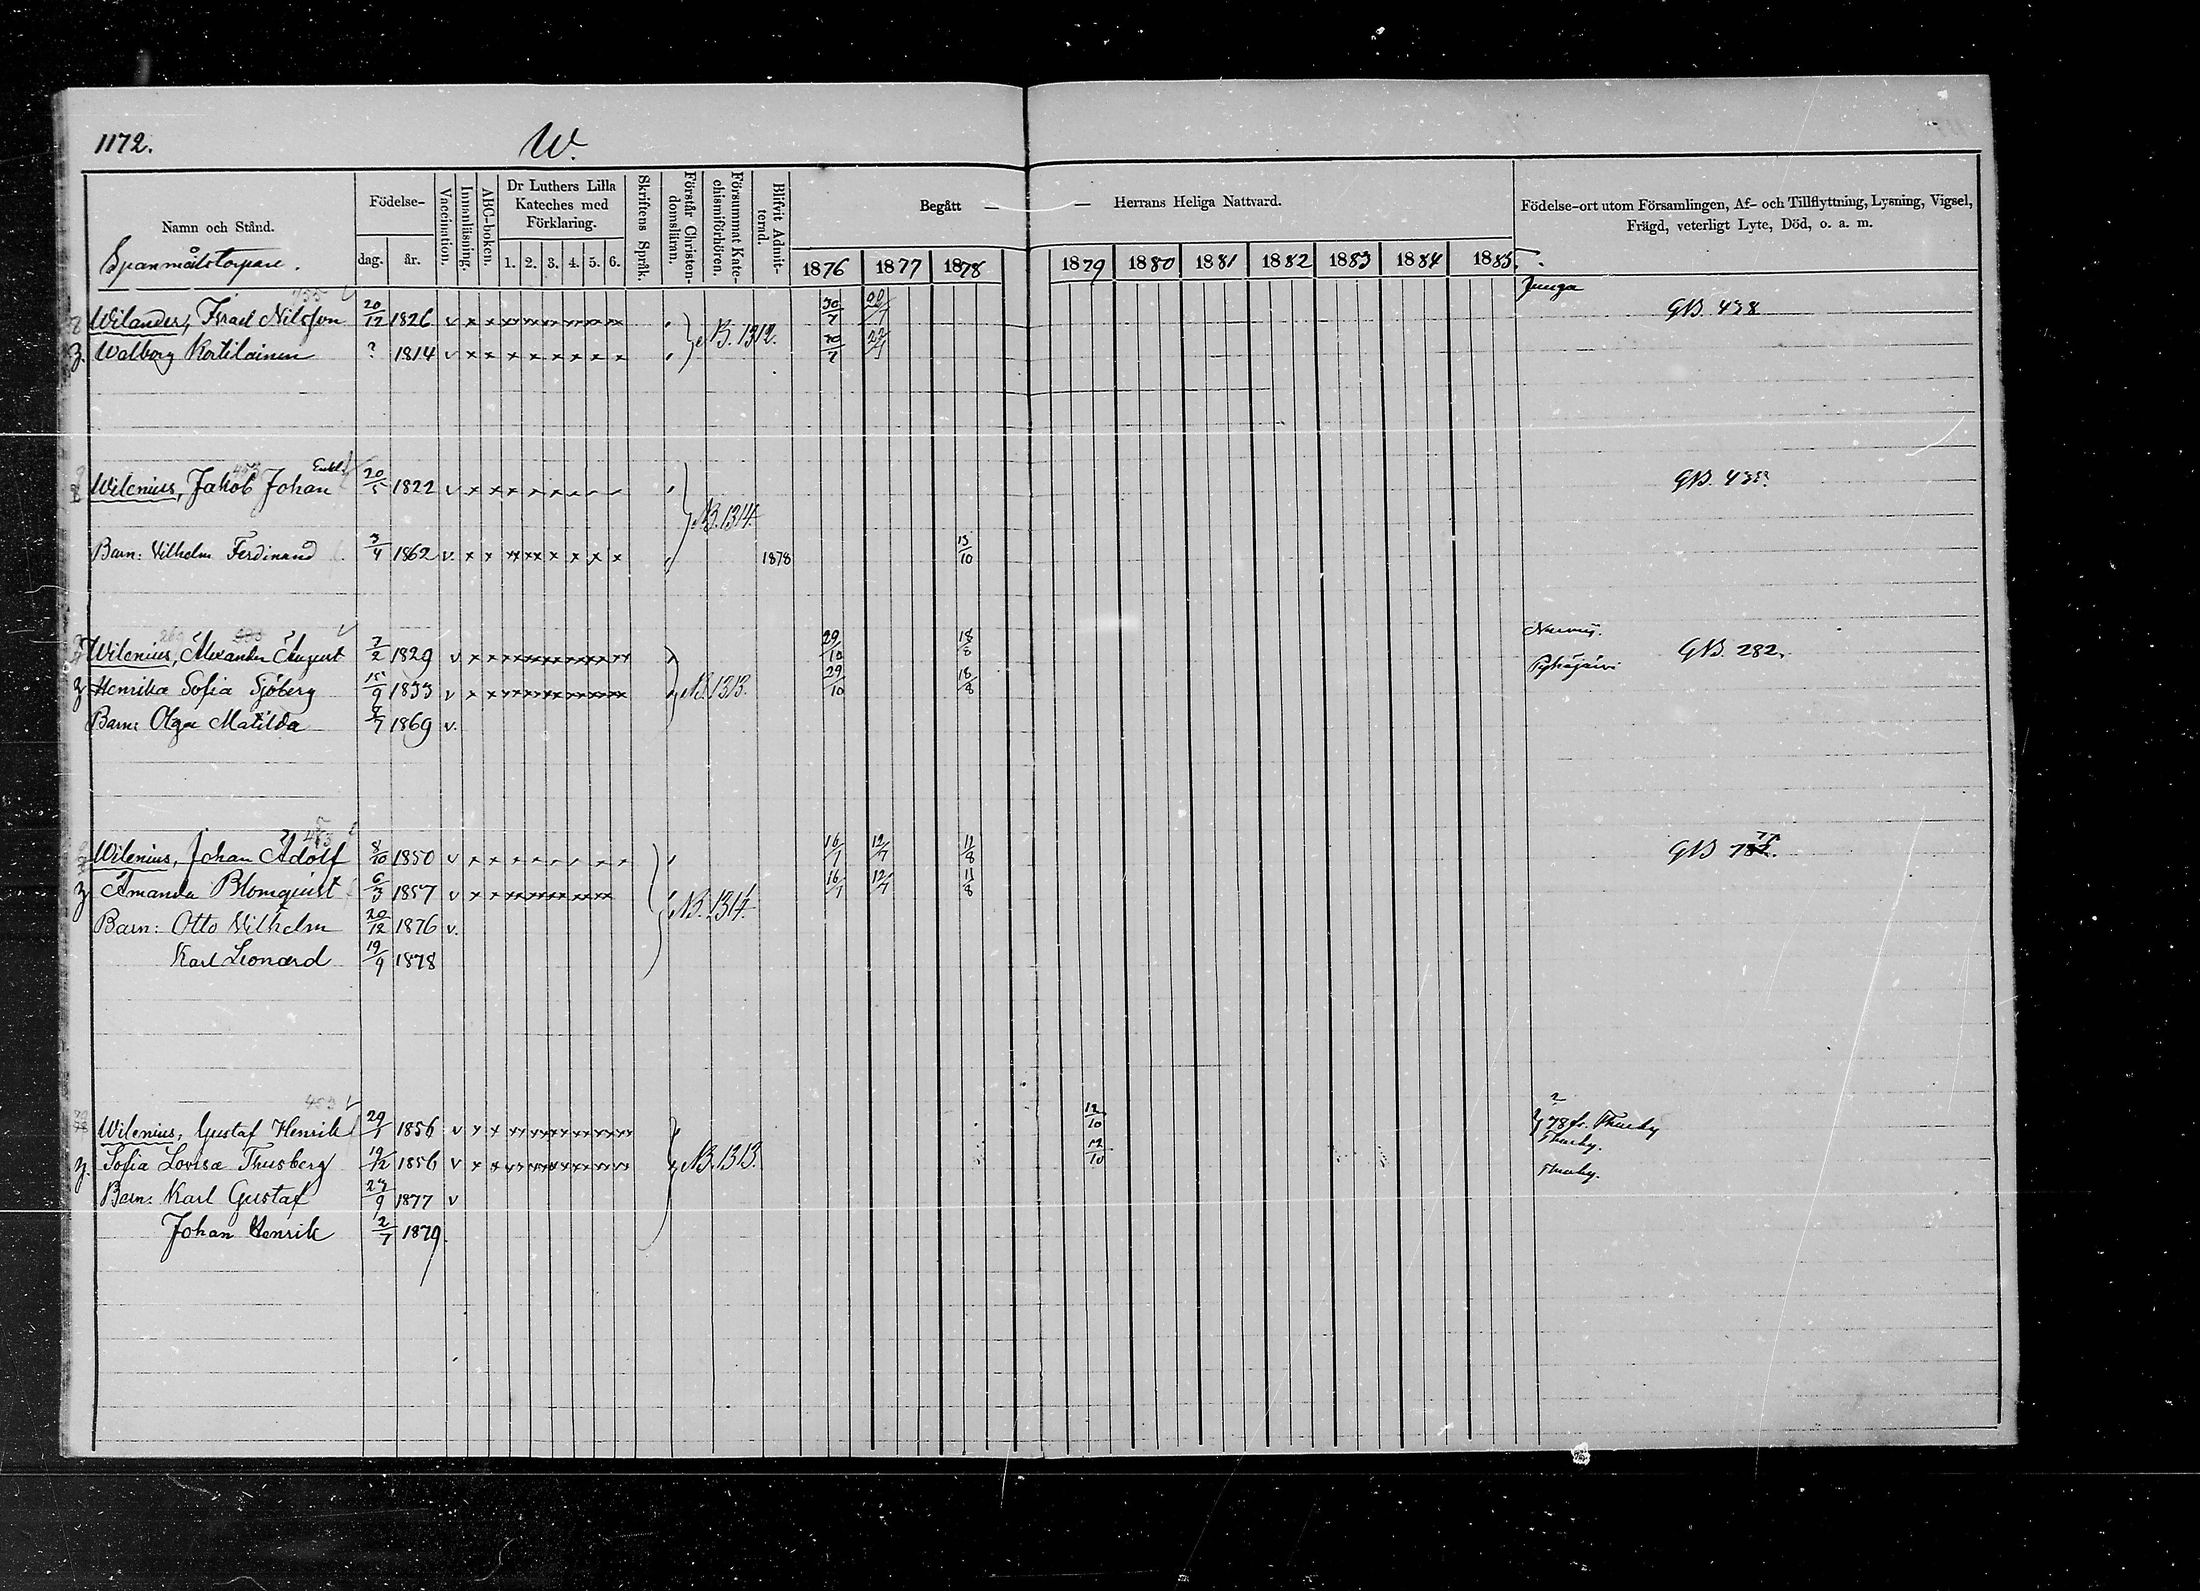 1172.
W.
Namn och Stånd.
Födelse-
dag. år.
Vaccination.
Innanläsning.
ABC-boken.
Dr Luthers Lilla Kateches med Förklaring.
1. 2. 3. 4. 5. 6.
Skriftens Språk.
Förstår Christen-domslären.
Försummat Kate-chismiförhören.
Blifvit Admit-terad.
Begått — — Herrans Heliga Nattvard.
1876 1877 1878 1879 1880 1881 1882 1883 1884 1885.
Födelse-ort utom Församlingen, Af- och Tillflyttning, Lysning, Vigsel,
Frägd, veterligt Lyte, Död, o. a. m.
Spanmålstorpare.
Wilander, Israel Nilsson 20/12 1826 v x x N.B. 1312. 30/7 22/7 Junga GB. 438
Walborg Kortilainen ? 1814 v x x x x x x x x 30/7 22/7
Enkl.
Wilenius, Jakob Johan 20/5 1822 v N.B. 1314.
Barn: Vilhelm Ferdinand 3/4 1862 v. x x 1878 13/10
Wilenius, Alexander August 7/2 1829 v N.B. 1313. 29/10 18/8 GB. 282.
Henrika Sofia Sjöberg 15/9 1833 v 29/10 18/8 Pyhäjärvi
Barn: Olga Matilda 1869 v.
Wilenius, Johan Adolf 8/10 1850 v N.B. 1314. 16/7 12/7 11/8 GB
Amanda Blomquist 6/3 1857 v 16/7 12/7 11/8
Barn: Otto Vilhelm 20/12 1876 v.
Karl Leonard 19/9 1878
453
Wilenius, Gustaf Henrik 29/1 1856 v x x N.B. 1313. 12/10 78 fr. Thusby
Thusby.
Sofia Lovisa Thusberg 19/12 1856 v x x 12/10 Thusby.
Barn: Karl Gustaf 27/9 1877 v
Johan Henrik 2/7 1879.